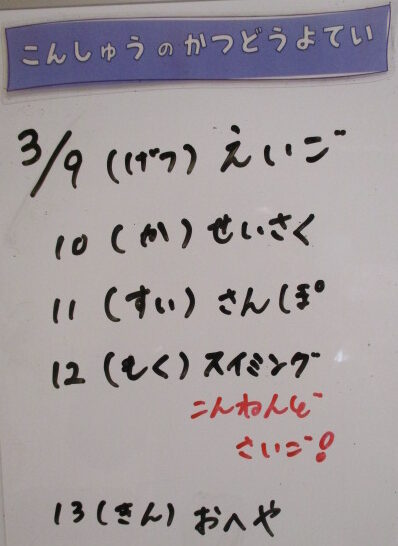 こんしゅうのかつどうよてい
3/9 (げつ) えいご
10 (か) せいさく
11 (すい) さんぽ
12 (もく) スイミング
こんねんど
さいご!
13 (きん) おへや